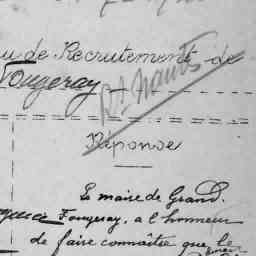 u de Recrutement de
Fougeray
Nantes
Réponse
Le maire de Grand.
Fougeray, a l'honneur
de faire connaître que le